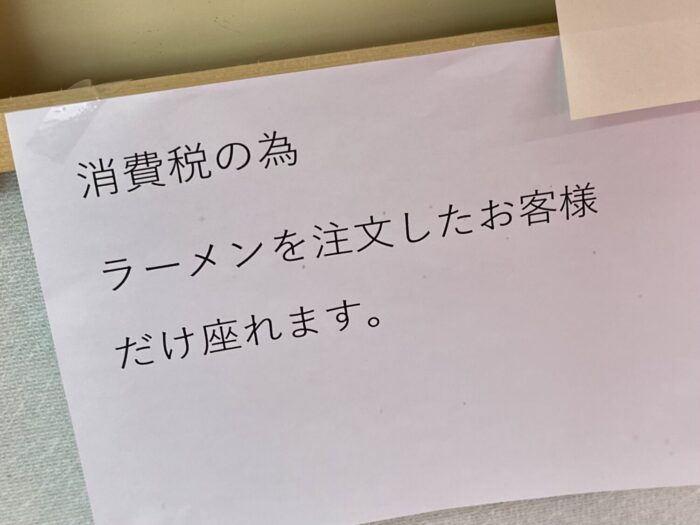 消費税の為
ラーメンを注文したお客様
だけ座れます。